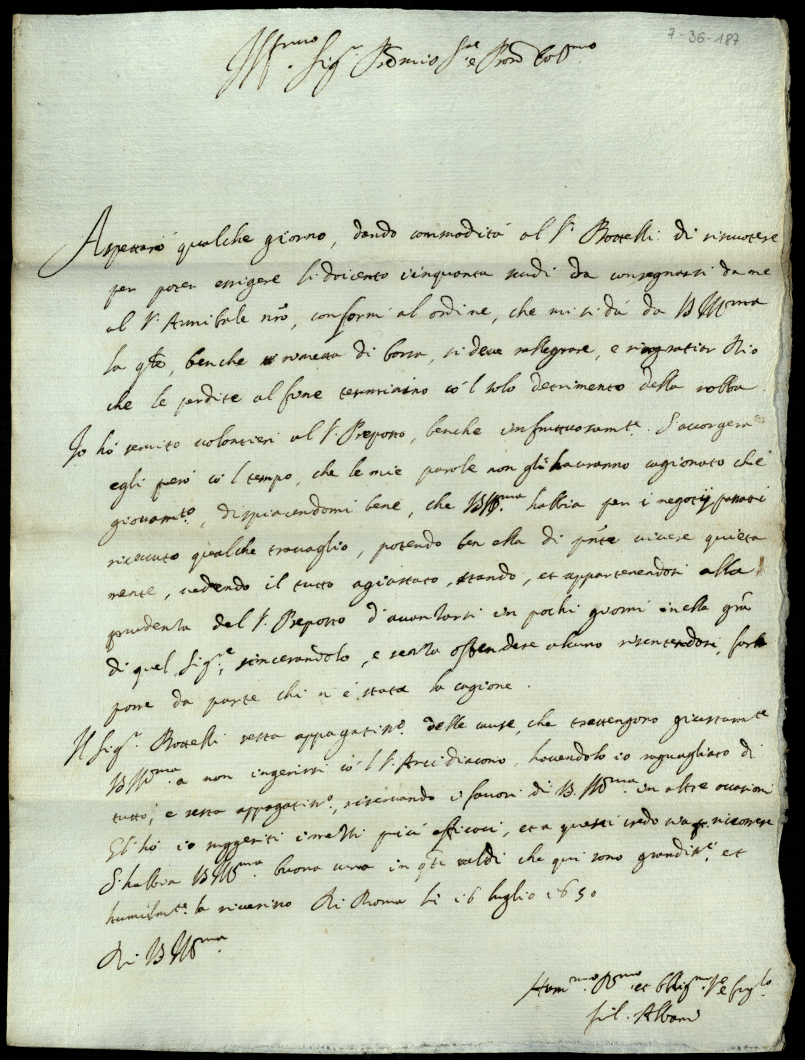 7-36-187
Ill.mo Sig.r P.rõn mio S.re e P.rõn Col.mo
Aspettarò qualche giorno, dando commodità al S.r Bottelli di riscuotere
per poter essigere li doicento cinquanta scudi da consegnarsi da me
al S.r Annibale n.ro, conforme al ordine, che mi si dà da V.S. Ill.ma
la q.le, benche rimetta di borsa, si deve rallegrare, e ringratiar Dio
che le perdite al fine terminino co'l solo detrimento della robba.
Io hò servito volontieri al S.r Preposto, benche infruttuosam.te. S'accorgerà
egli però co'l tempo, che le mie parole non gli havranno cagionato che
giovam.to, dispiacendomi bene, che V.S. Ill.ma habbia per i negotij passati
ricevuto qualche travaglio, potendo ben ella di p.nte vivere quieta
mente, vedendo il tutto agiustato, stando, et appartenendosi alla
prudenza del S.r Preposto d'avantarsi in pochi giorni nella grã
di quel Sig.re, sincerandolo, e senza offendere alcuno risentendosi,
porre da parte chi n'è stata la cagione.
Il Sig.r Bottelli resta appagatiss.o delle cause, che trattengono giustam.te
V.S. Ill.ma a non ingerirsi co'l S.r Arcidiacono, havendolo io raguagliato di
tutto, e resta appagatiss.o, riservando i favori di V.S. Ill.ma in altre occasioni
Gli hò io suggeriti i mezzi più efficaci, et a questi credo ricorrere
S'habbia V.S. Ill.ma buona cura in q.ti caldi che qui sono grandiss.i, et
humilm.te la riverisco Di Roma li 16 luglio 1650
Di V.S. Ill.ma
Hum.mo D.mo et Oblig.mo S.re e
fil. Albani